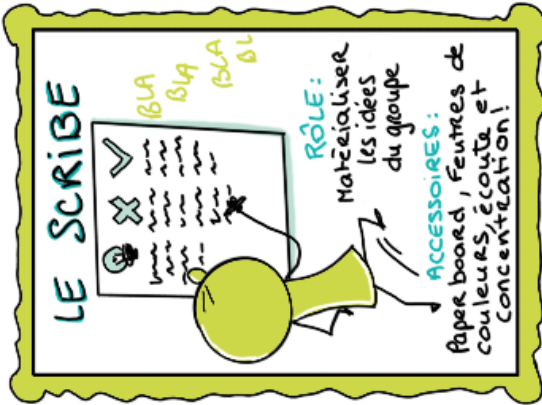 LE SCRIBE
BLA
BLA
BLA
BL
RÔLE:
Matérialiser
les idées
du groupe
ACCESSOIRES:
Paper board, Feutres de
couleurs, écoute et
concentration!